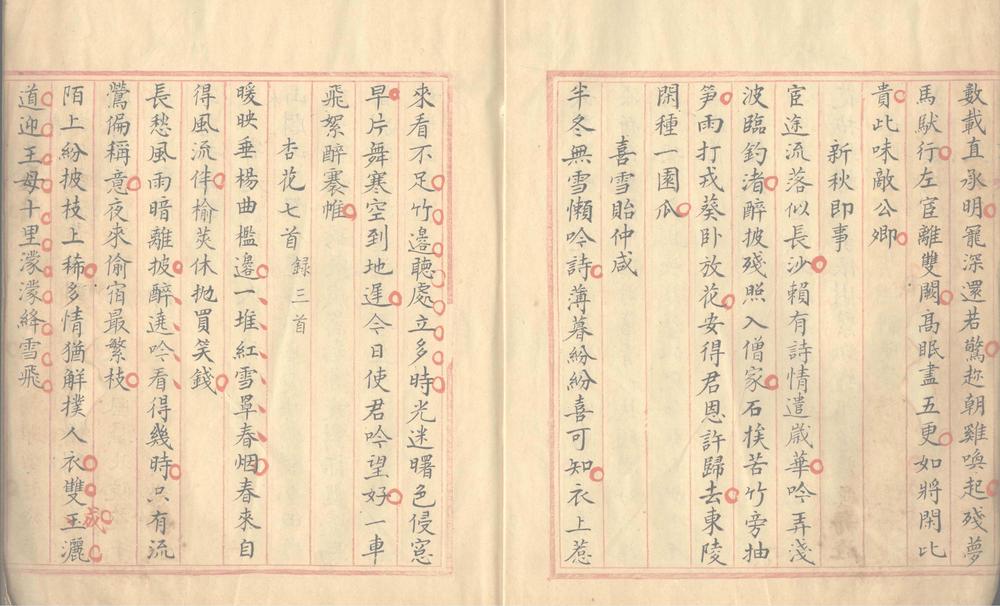 數載直承明寵深還若驚趂朝雞喚起殘夢
馬䭾行左宦離雙闕髙眠盡五更如將閑比
貴此味敵公卿
新秋即事
宦途流落似長沙賴有詩情遣歲華吟弄淺
波臨釣渚醉披殘照入僧家石挨苦竹旁抽
笋雨打戎葵卧放花安得君恩許歸去東陵
閑種一園瓜
喜雪貽仲咸
半冬無雪懶吟詩薄暮紛紛喜可知衣上惹
來看不足竹邉聽處立多時光迷曙色侵窓
早片舞寒空到地遲今日使君吟望好一車
飛絮醉褰帷
杏花七首 録三首
暖映垂楊曲檻邉一堆紅雪罩春烟春來自
得風流伴榆莢休抛買笑錢
長愁風雨暗離披醉遶吟看得幾時只有流
鶯偏稱意夜來偷宿最繁枝
陌上紛披枝上稀多情猶解撲人衣雙玉灑
成
道迎王母十里濛濛絳雪飛